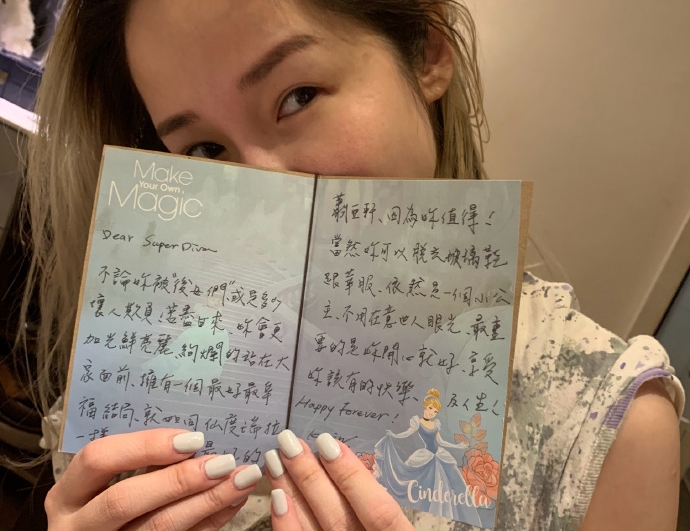 Make
Your Own
Magic
Dear Super Diva
不論妳被"後母們"或是多少
壞人欺負，苦盡甘來，妳會更
加光鮮亮麗、絢爛的站在大
家面前、擁有一個最好最幸
福結局、就如同仙度瑞拉
一樣 最好的
軒、因為妳值得！
當然妳可以脫去玻璃鞋
跟華服、依然是一個小公
主、不用在意世人眼光、最重
要的是妳開心就好、享受
妳該有的快樂、及人生！
Happy Forever!
Cinderella